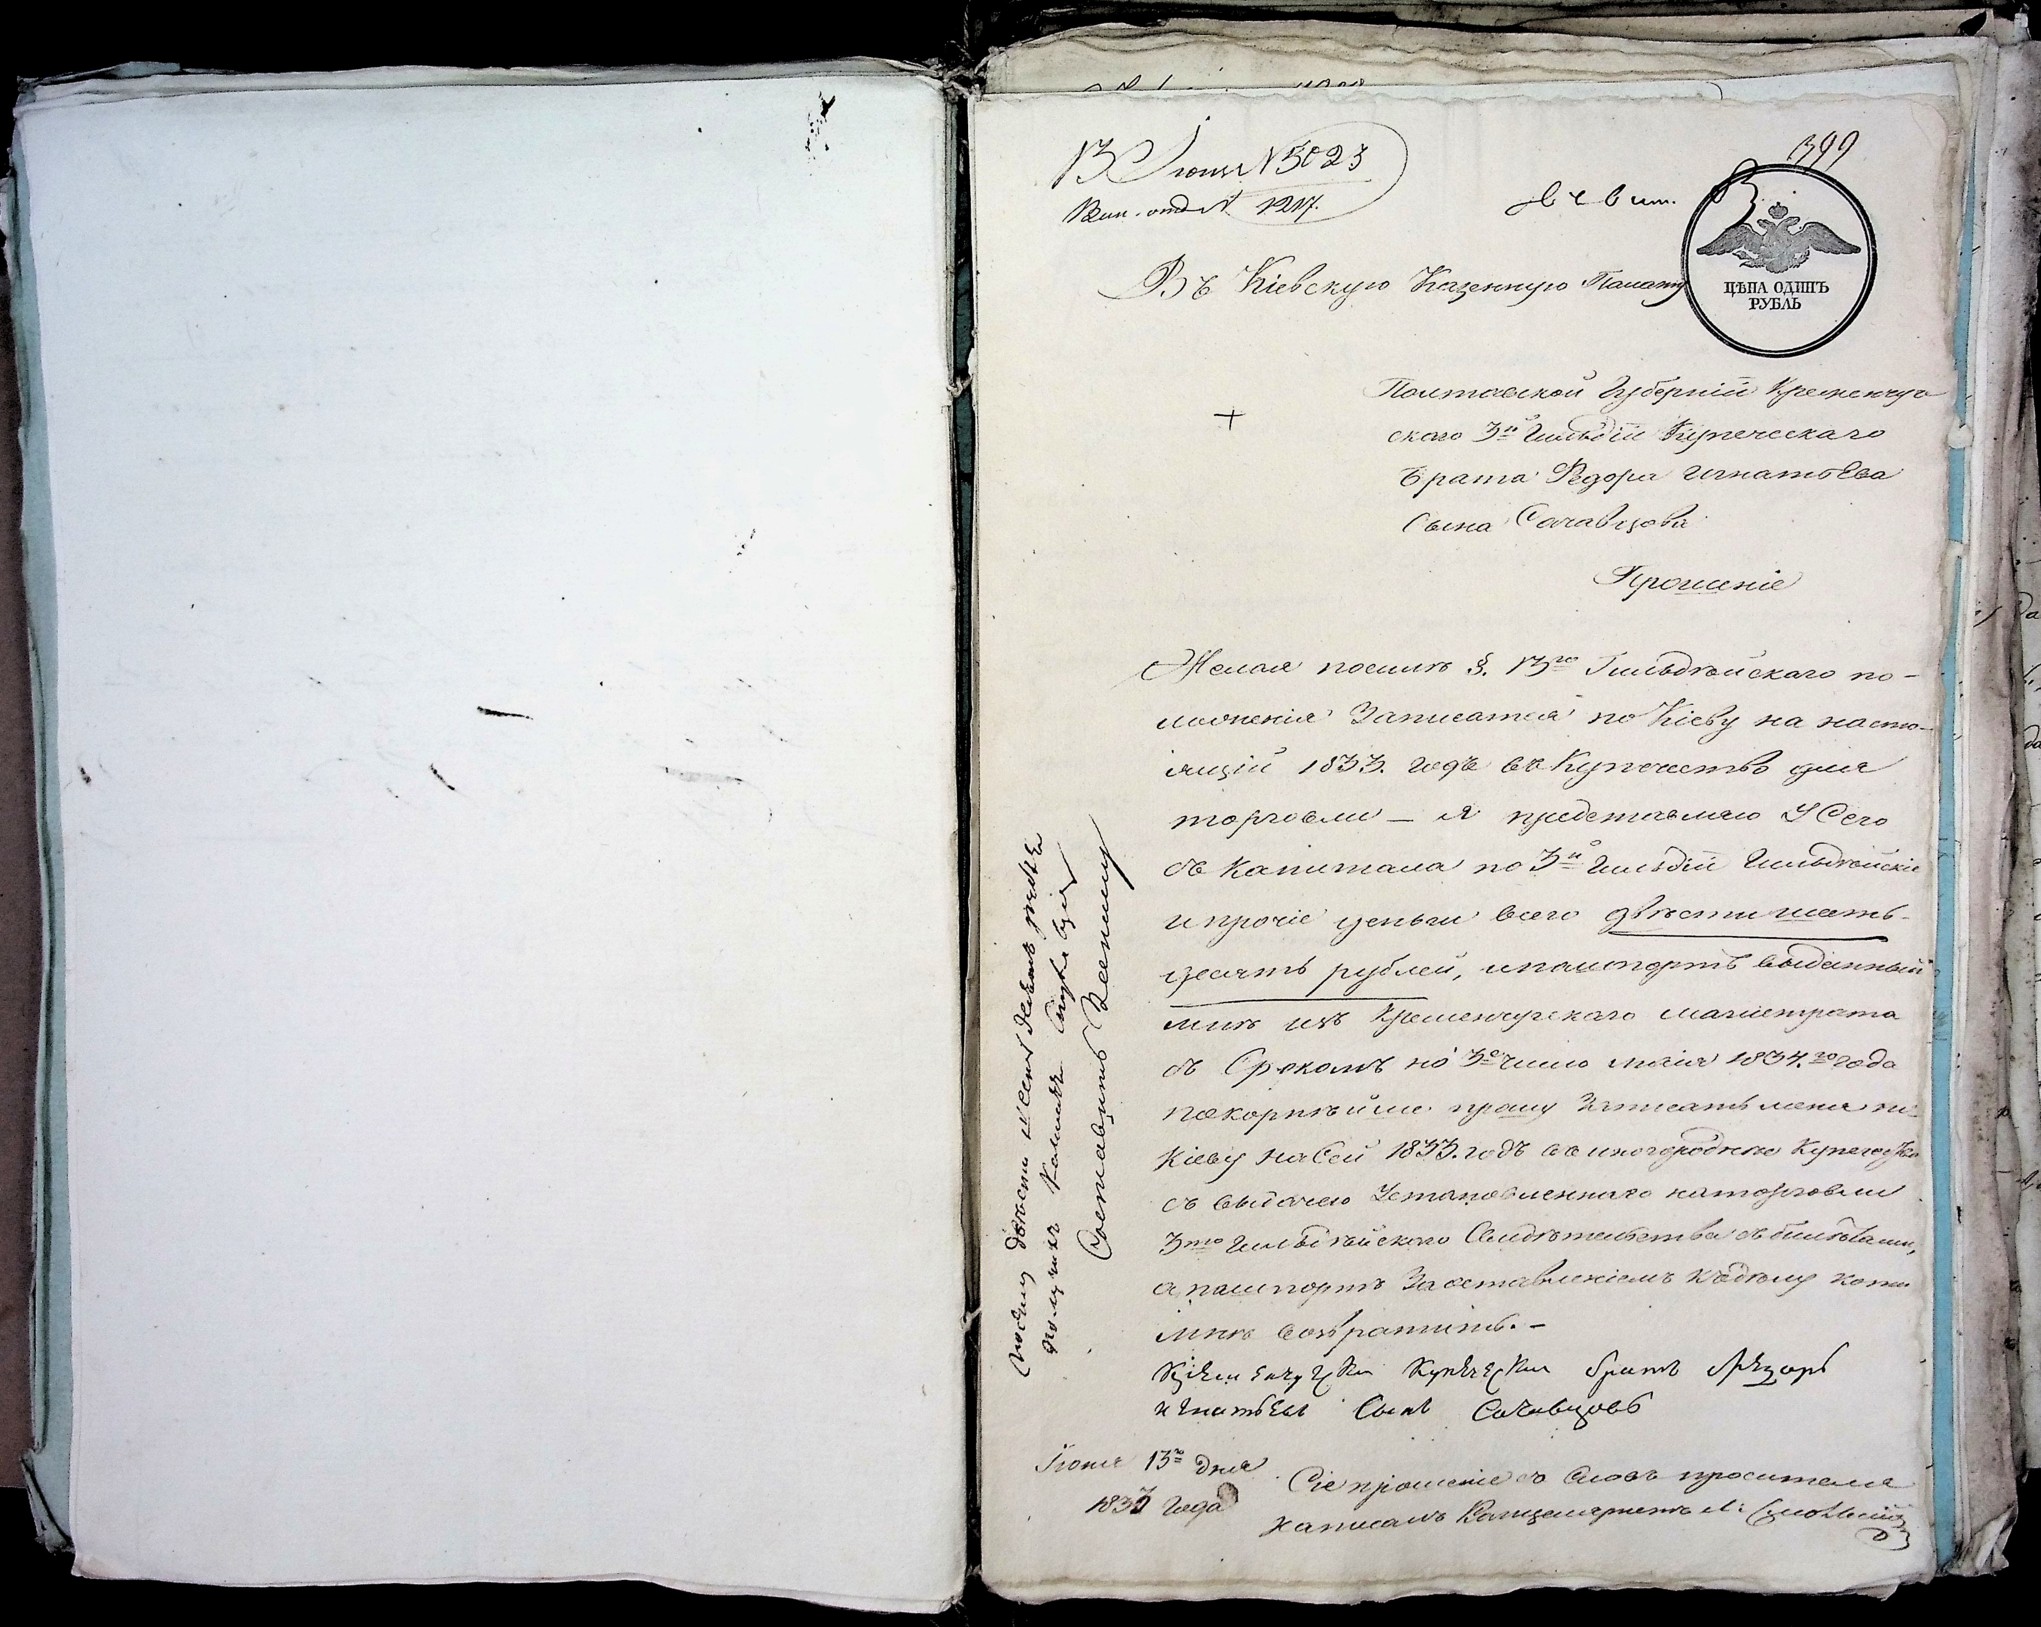 399
13 Іюня N 5023
Вин. отд. N 1217.
Въ Кіевскую Казенную Палату
ЦѢНА ОДИНЪ
РУБЛЬ
Полтавской Губерніи Кременчуг
скаго 3й Гильдіи Купеческаго
брата Федора Игнатьева
Сына Сачавцова
Прошеніе
Желая посилѣ §. 13го Гильдѣйскаго по-
ложенія Записатся по Кіеву на насто-
ящій 1833. годъ въ Купечество для
торговли — я представляю У Сего
съ Капитала по 3й Гилдіи Гильдѣйскіе
и прочіе деньги всего двѣсти шесть-
десятъ рублей, и пашпортъ выданный
мнѣ изъ Кременчугскаго магистрата
съ Срокомъ по 3е число маія 1834.го года
покорнѣйше прошу Записать меня по
Кіеву на Сей 1833. годъ въ иногородные
съ выдачею Установленнаго на торговлю
3го Гильдѣйскаго Свидѣтельства съ билетами,
а пашпортъ За оставленіемъ къ дѣлу копіи
мнѣ возвратить. –
купеческии братъ Федоръ
игнатьевъ Сынъ Сачавцовъ
Іюня 13го дня
1833 Года
Сіе прошеніе со Словъ просителя
написалъ Канцеляристъ
По сему двѣсти шестдесятъ рублѣ
получилъ